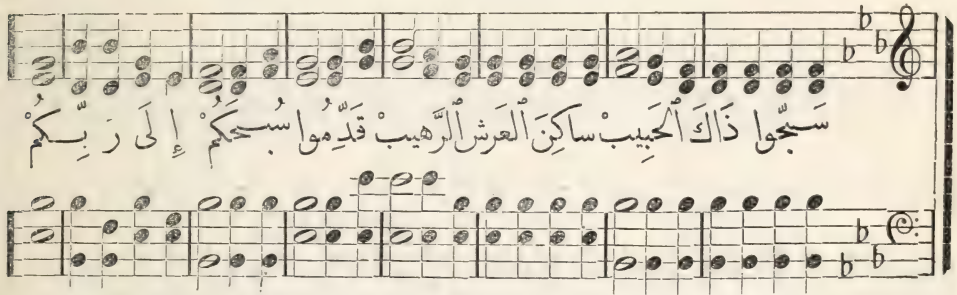 سَبِّحُوا ذَاكَ ٱلْحَبِيبْ سَاكِنَ ٱلْعَرشِ ٱلرَّهِيبْ قَدِّمُوا سُبحَكُمْ إِلَى رَبِّكُمْ